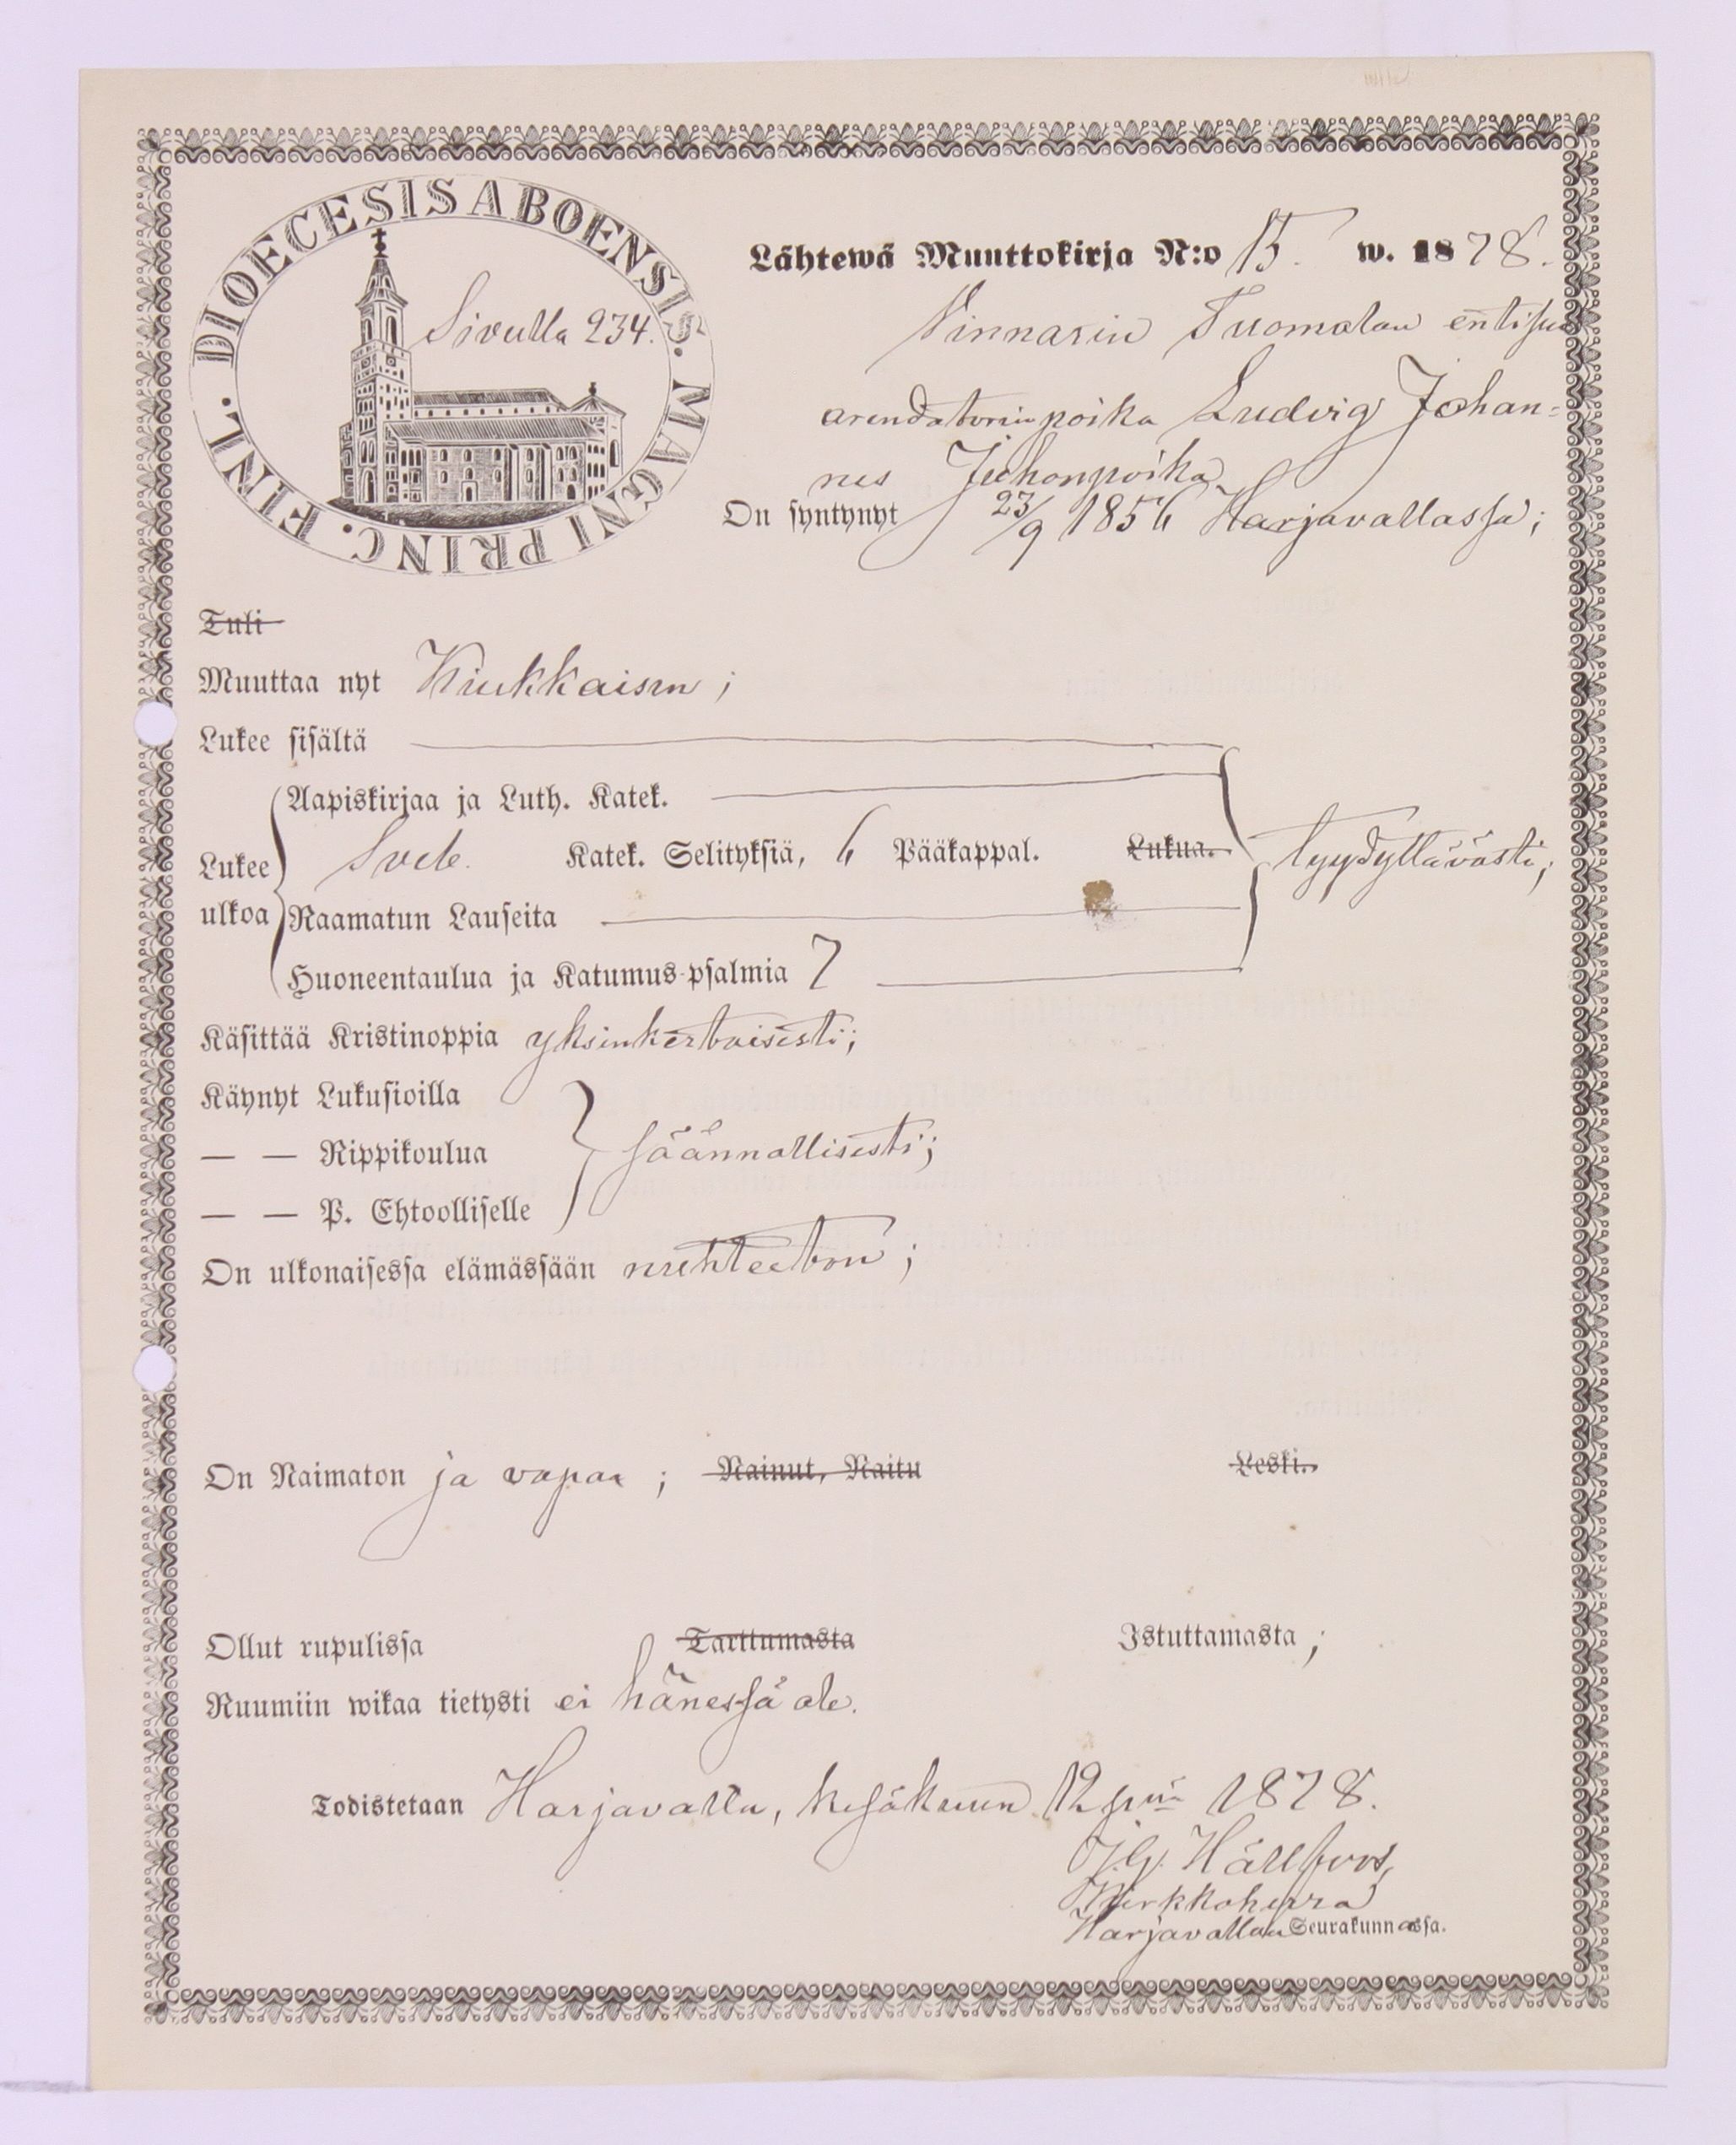 DIOECESIS ABOENSIS. MAGNI PRINC. FINL.
Sivulla 234.
Lähtewä Muuttokirja N:o 15. w. 1878.
Vinnarin Tuomolan entisen
arendatorin poika Ludvig Johan=
nes Juhonpoika
On syntynyt 23/9 1856 Harjavallassa;
Tuli
Muuttaa nyt Kiukkaisen;
Lukee sisältä
Aapiskirjaa ja Luth. Katek.
Lukee ulkoa Sveb. Katek. Selityksiä, 6 Pääkappal. Lukua. tyydyttävästi;
Raamatun Lauseita
Huoneentaulua ja Katumus-psalmia 7
Käsittää Kristinoppia yksinkertaisesti;
Käynyt Lukusioilla
— — Rippikoulua säännöllisesti;
— — P. Ehtoolliselle
On ulkonaisessa elämässään nuhteeton;
On Naimaton ja vapaa; Nainut, Naitu Leski.
Ollut rupulissa Tarttumasta Istuttamasta;
Ruumiin wikaa tietysti ei hänessä ole.
Todistetaan Harjavalta, kesäkuun 12 p:nä 1878.
Hällfors,
Kirkkoherra
Harjavallan Seurakunnassa.